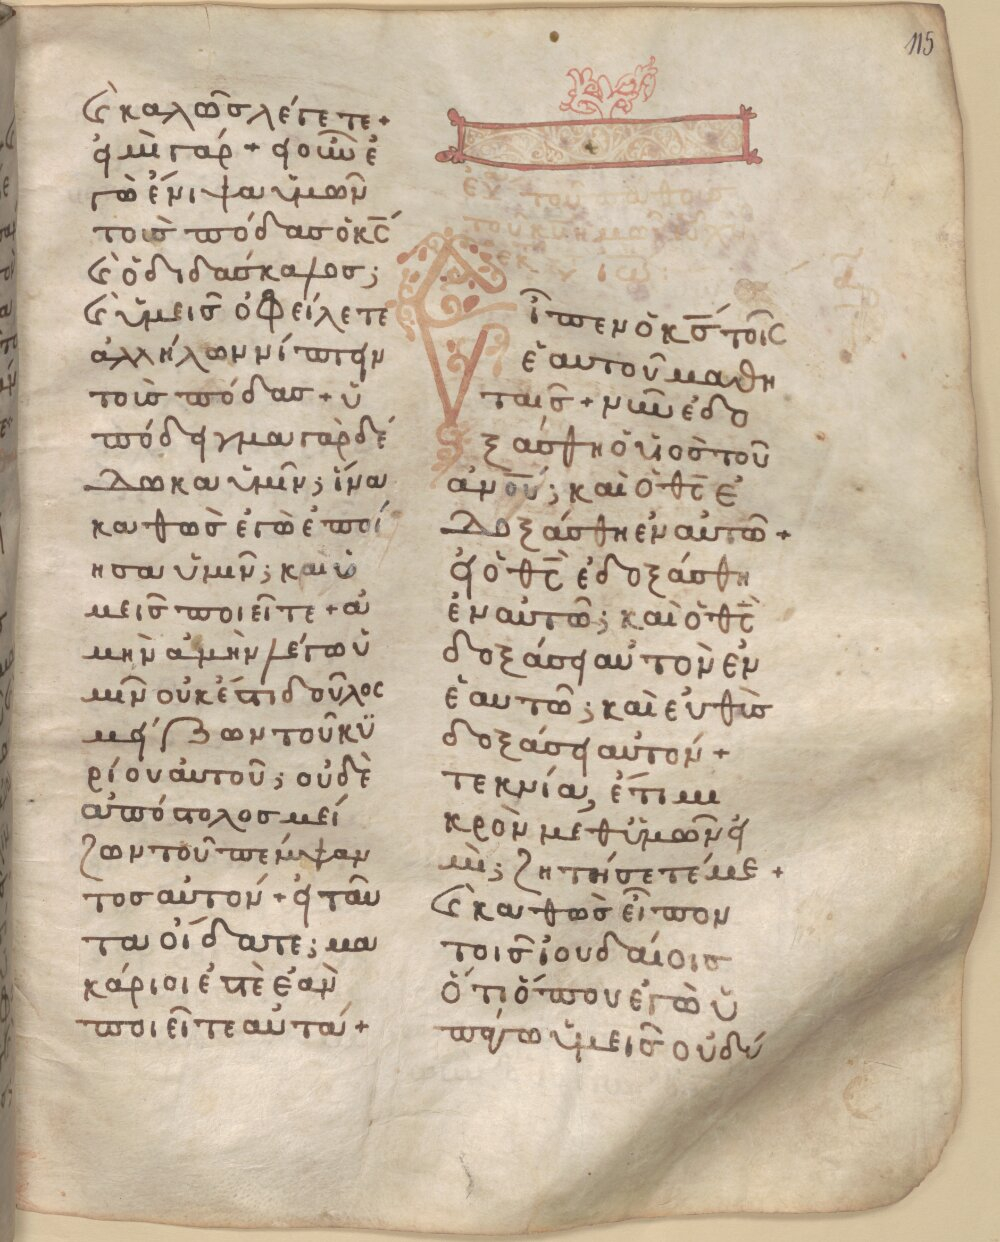 115
(καὶ) καλῶς λέγετε +
εἰμὶ γάρ + εἰ οὖν ἐ
γὼ ἔνιψα ὑμῶν
τοὺς πόδας ὁ κ̅ς̅
(καὶ) ὁ διδάσκαλος;
(καὶ) ὑμεῖς ὀφείλετε
ἀλλήλων νίπτειν
τοὺς πόδας + ὑ
πόδειγμα γὰρ δέ
δωκα ὑμῖν; ἵνα
καθὼς ἐγὼ ἐποί
ησα ὑμῖν; καὶ ὑ
μεῖς ποιεῖτε + ἀ
μὴν ἀμὴν λέγω ὑ
μῖν οὐκ ἔστι δοῦλος
μείζων τοῦ κυ
ρίου αὐτοῦ; οὐδὲ
ἀπόστολος μεί
ζων τοῦ πέμψαν
τος αὐτόν + εἰ ταῦ
τα οἴδατε; μα
κάριοί ἐστε ἐὰν
ποιεῖτε αὐτά +
Εἶπεν ὁ κ̅ς̅ τοῖς
ἑαυτοῦ μαθη
ταῖς + νῦν ἐδο
ξάσθη ὁ υἱὸς τοῦ
α̅ν̅ο̅υ̅; καὶ ὁ θ̅ς̅ ἐ
δοξάσθη ἐν αὐτῶ +
εἰ ὁ θ̅ς̅ ἐδοξάσθη
ἐν αὐτῶ; καὶ ὁ θ̅ς̅
δοξάσει αὐτὸν ἐν
ἑαυτῶ; καὶ εὐθὺς
δοξάσει αὐτόν +
τεκνία, ἔτι μι
κρὸν μεθ ὑμῶν εἰ
μὶ; ζητήσετέ με +
(καὶ) καθὼς εἶπον
τοῖς ἰουδαίοις
ὅτι ὅπου ἐγὼ ὑ
πάγω ὑμεῖς οὐ δύ